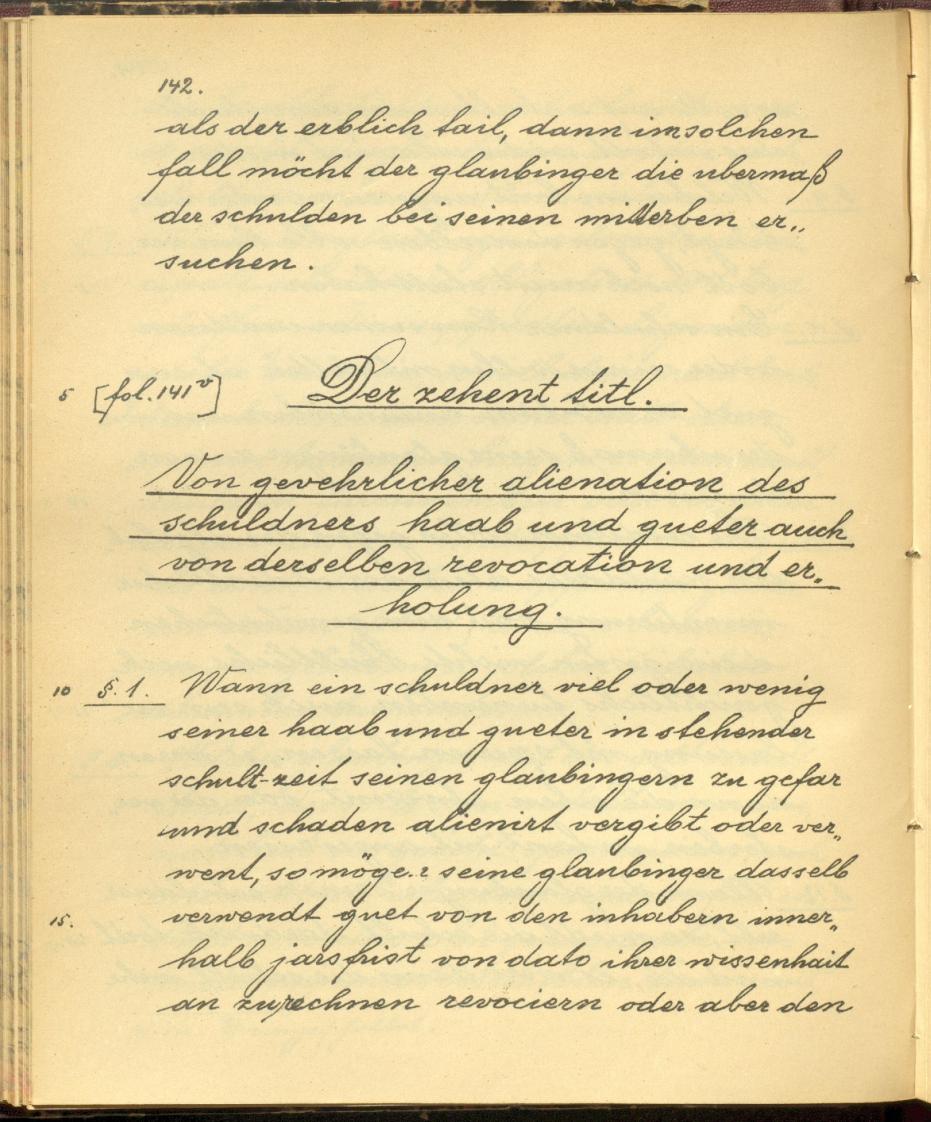 142.
als der erblich tail, dann im solchen
fall möcht der glaubinger die ubermaß
der schulden bei seinen mitterben er„
suchen.
5 [fol. 141v] Der zehent titl.
Von gevehrlicher alienation des
schuldners haab und gueter auch
von derselben revocation und er„
holung.
10 §. 1. Wann ein schuldner viel oder wenig
seiner haab und gueter in stehender
schult-zeit seinen glaubingern zu gefar
und schaden alienirt vergibt oder ver„
went, so mögen seine glaubinger dasselb
15. verwendt guet von den inhabern inner„
halb jarsfrist von dato ihrer wissenhait
an zurechnen revociern oder aber den